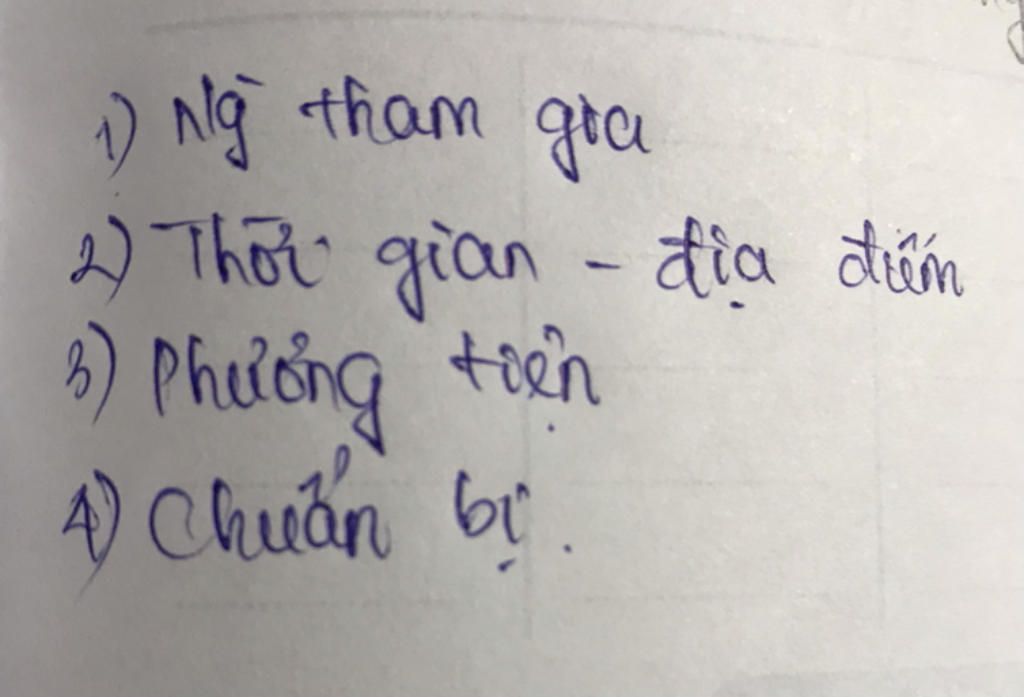 1) Ng` tham gia
2) Thời gian - địa điểm
3) Phương tiện
4) Chuẩn bị.